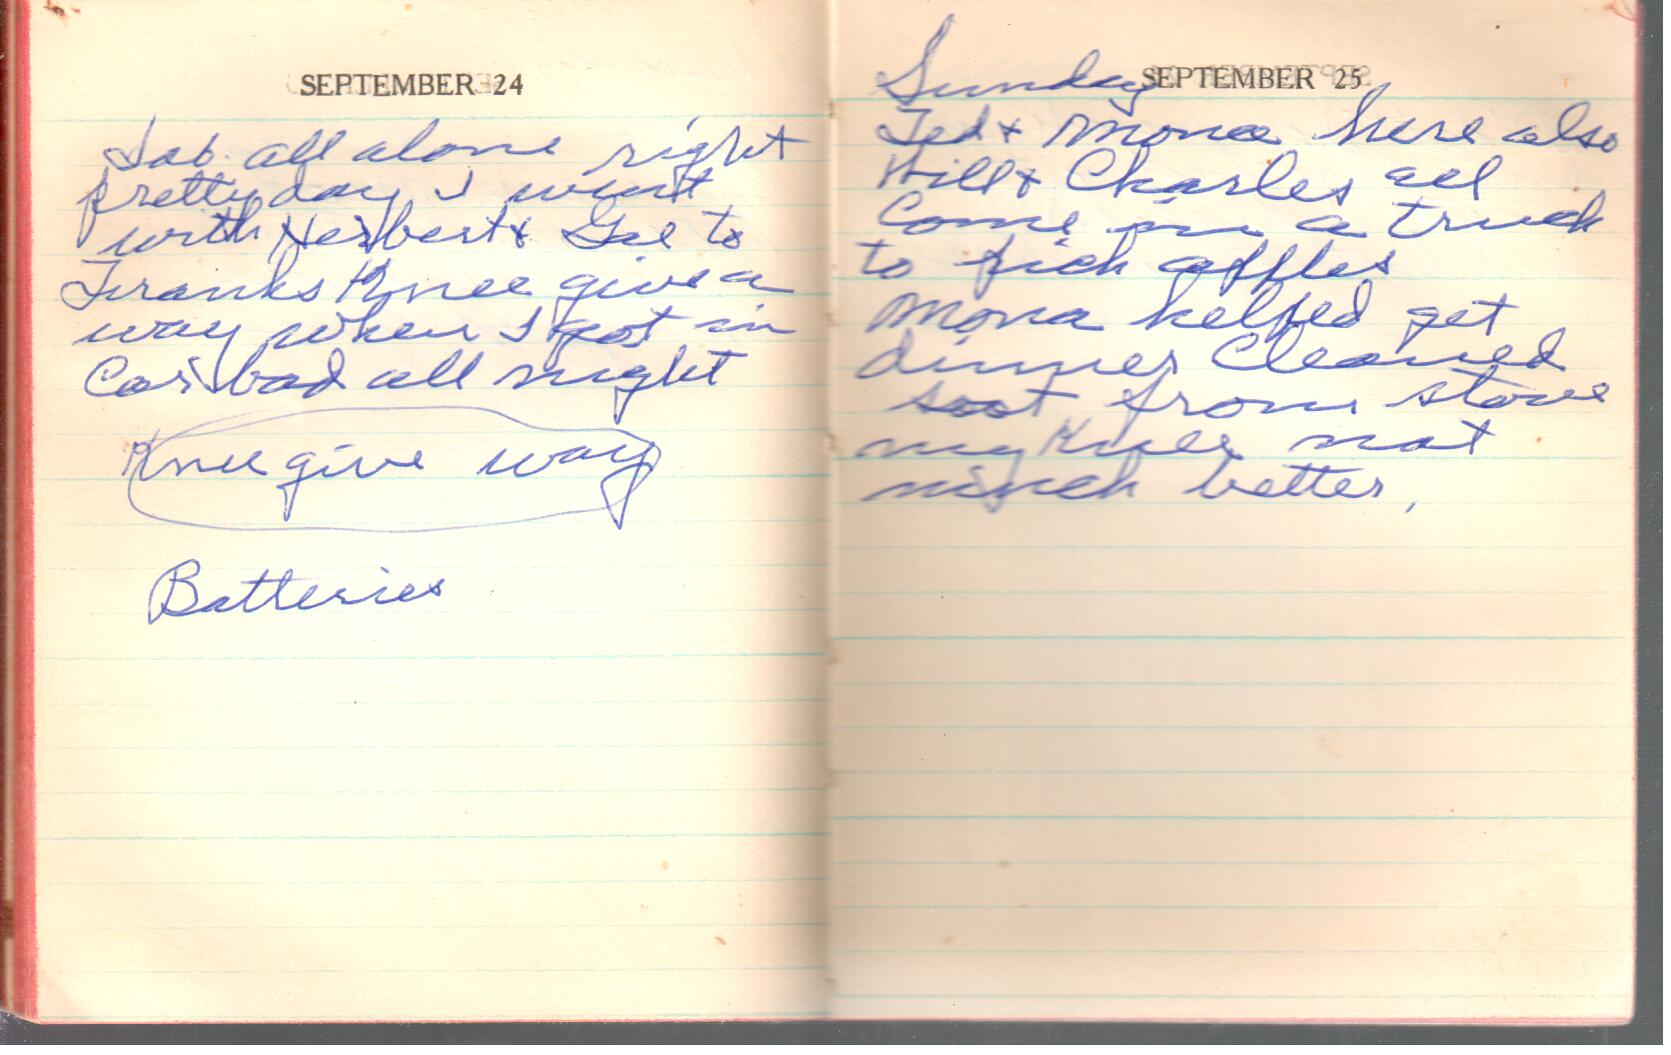 SEPTEMBER 24
Sat. all alone right
pretty day I went
with Herbert & Gee to
Franks Knee give a
way when I got in
Car bad all night
Knee give way
Batteries
SEPTEMBER 25
Sunday
Ted & Mona here also
Will & Charles all
Come in a truck
to pick apples
Mona helped get
dinner Cleaned
soot from stove
my Knee not
much better,